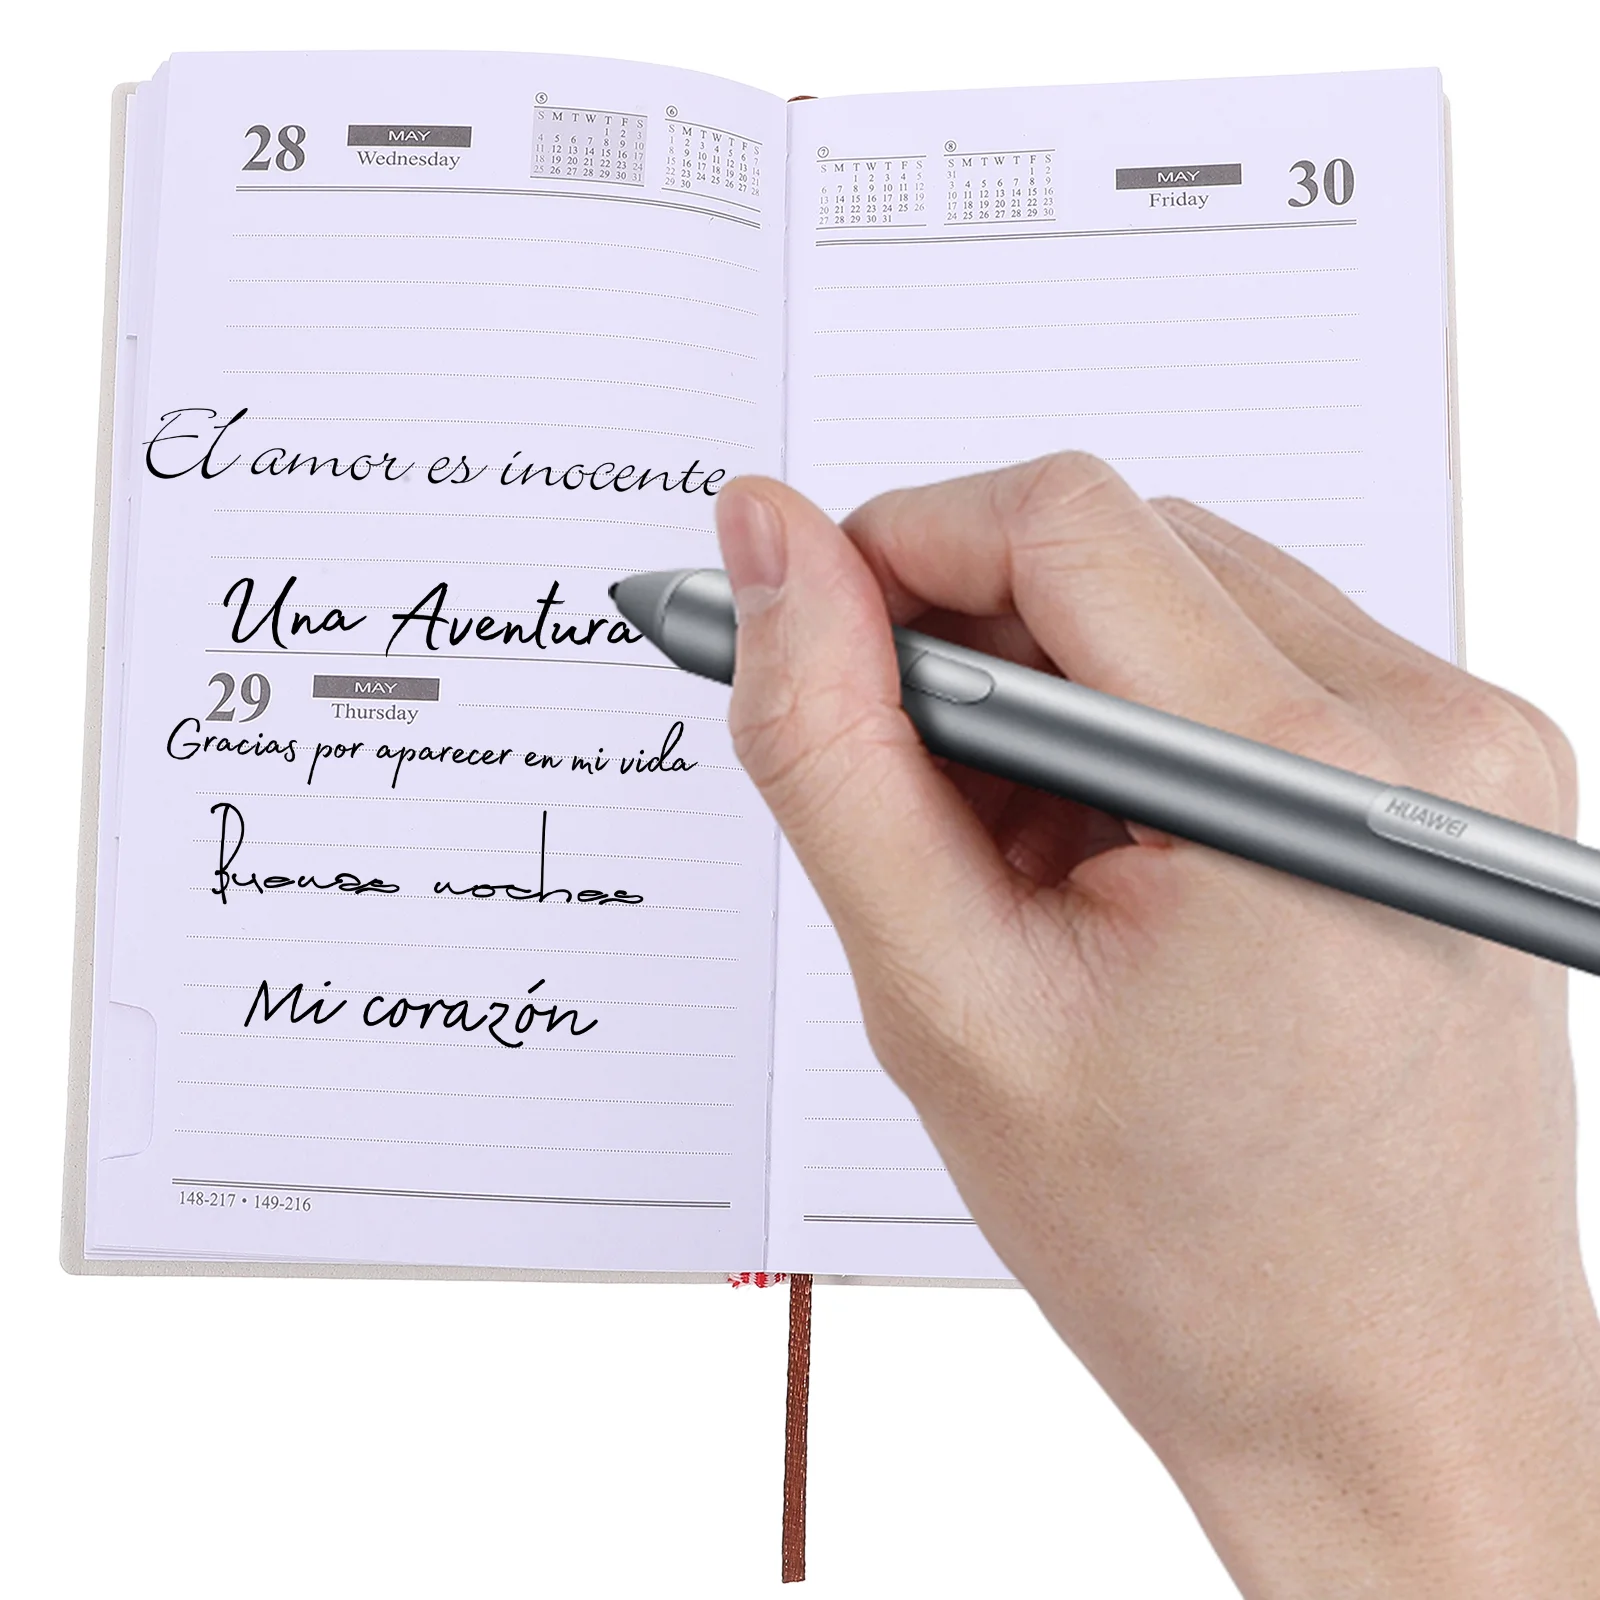 28 MAY Wednesday
5
S M T W T F S
1 2 3
4 5 6 7 8 9 10
11 12 13 14 15 16 17
18 19 20 21 22 23 24
25 26 27 28 29 30 31
6
S M T W T F S
1 2 3 4 5 6 7
8 9 10 11 12 13 14
15 16 17 18 19 20 21
22 23 24 25 26 27 28
29 30
El amor es inocente
Una Aventura
29 MAY Thursday
Gracias por aparecer en mi vida
Buenas noches
Mi corazón
148-217 • 149-216
7
S M T W T F S
1 2 3 4 5
6 7 8 9 10 11 12
13 14 15 16 17 18 19
20 21 22 23 24 25 26
27 28 29 30 31
8
S M T W T F S
31 1 2
3 4 5 6 7 8 9
10 11 12 13 14 15 16
17 18 19 20 21 22 23
24 25 26 27 28 29 30
MAY Friday 30
HUAWEI